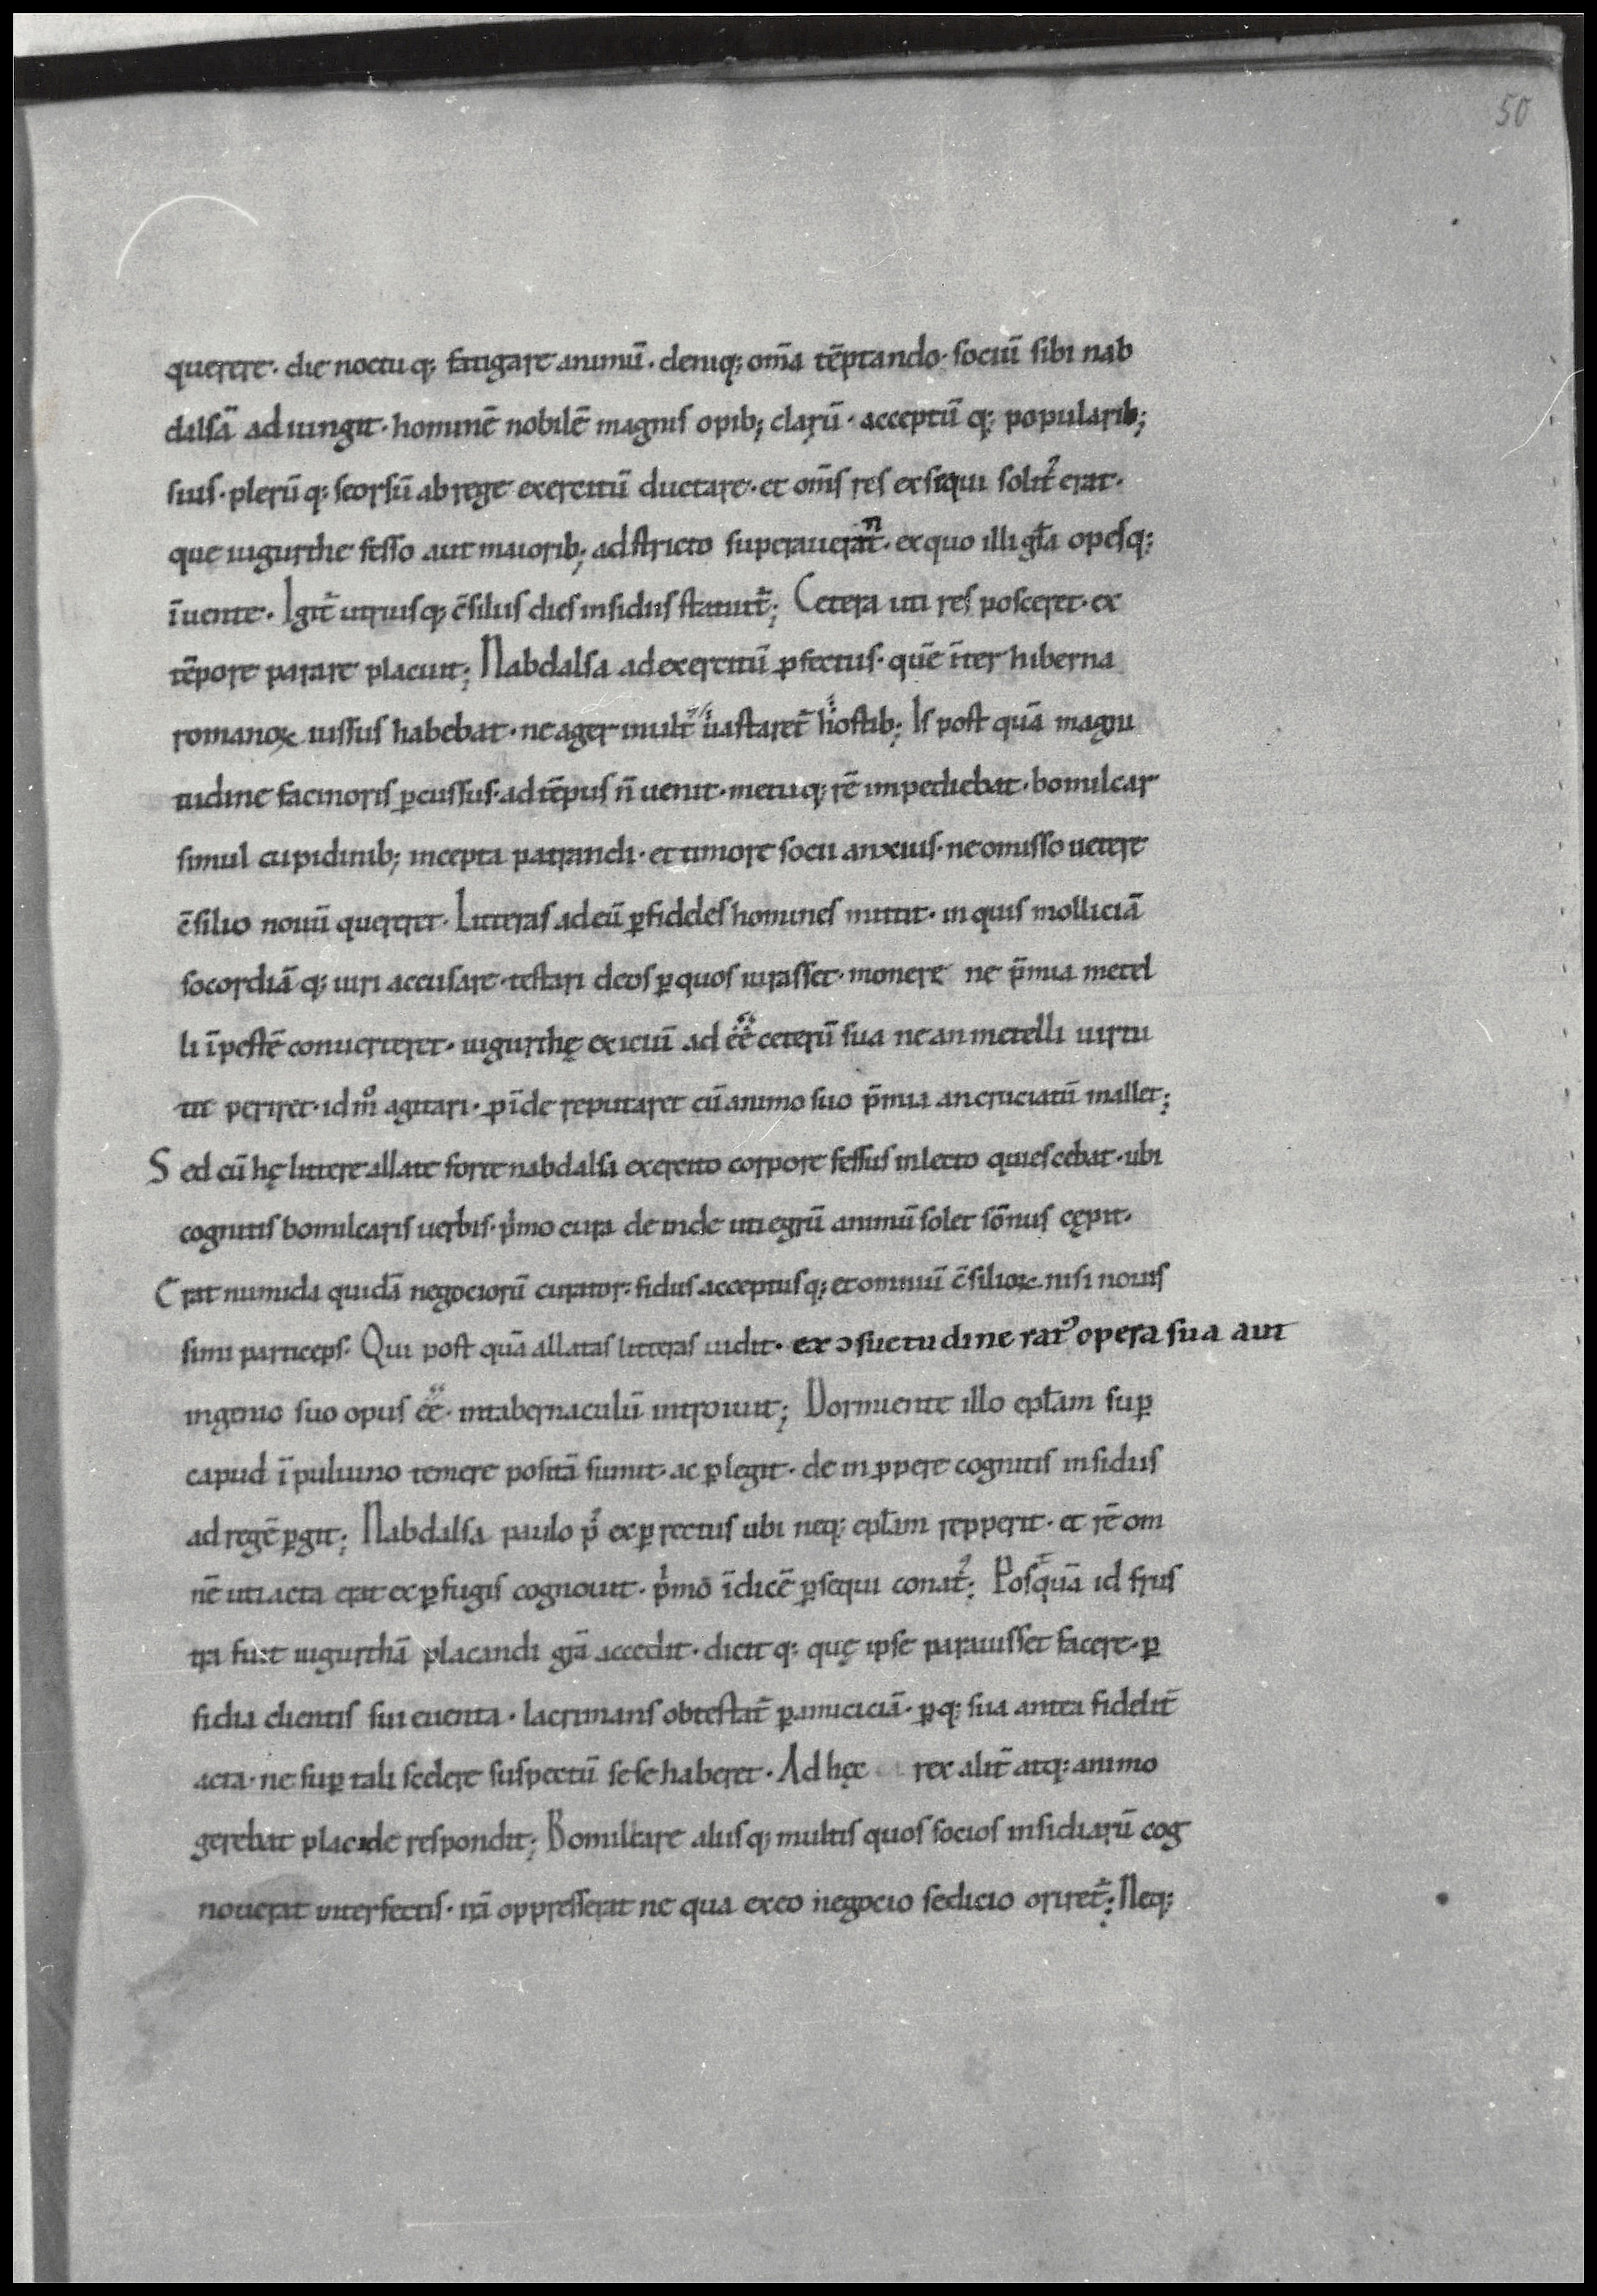 50
querere· die noctu q; fatigare animū· deniq; om̄a tēptando· sociū sibi nab
dalsā ad iungit· hominē nobilē magnis opib; clarū· acceptū q; popularib;
suis· plerū q; seorsū ab rege exercitū ductare· et om̄s res exsequi solit᾽ erat·
que iugurthe fesso aut maiorib; adstricto superauerant· ex quo illi gl̄a opesq;
īuente· Igit᷑ utriusq; c̄silius dies insidiis statuit᷑; Cetera uti res posceret· ex
tēpore parare placuit; Nabdalsa ad exercitū ꝓfectus· quē īter hiberna
romanoꝝ iussus habebat· ne ager inult᾽ uastaret᷑ hostib; Is post quā magni
tudine facinoris ꝑcussus· ad tēpus n̄ uenit· metuq; rē impediebat· bomilcar
simul cupidinib; incepta patrandi· et timore socii anxius· ne omisso uetere
c̄silio nouū quereret· Litteras ad eū ꝑ fiddes homines mittit· in quis molliciā
socordiā q; uiri accusare· testari deos ꝑ quos iurasset· monere ne p̄mia metel
li ī pestē conuerteret· iugurthę exiciū ad ēē ceterū sua ne an metelli uirtu
tit periret· id m̊ agitari· ꝓīde reputaret cū animo suo p̄mia an cruciatū mallet;
Sed cū hę littere allate forte nabdalsa exercito corpore fessus in lecto quiescebat· ubi
cognitis bomilcaris uerbis· pͥmo cura de inde uti egrū animū solet sōnus cępit·
Erat numida quidā negociorū curator· fidus acceptusq; et omniū c̄silioꝝ nisi nouis
simi particeps· Qui post quā allatas litteras uidit· ex ɔsuetudine rat᾽ opera sua aut
ingenio suo opus ēē· in tabernaculū introiuit; Dormiente illo epl̄am suꝑ
capud ī puluino temere positā sumit· ac ꝑlegit· de in ꝓpere cognitis insidiis
ad regē ꝑgit; Nabdalsa paulo p᾽ exꝑrectus ubi neq; epl̄am repperit· et rē om
nē uti acta erat ex ꝑfugis cognouit· pͥmō īdicē ꝑsequi conat᾽; Posq̄uā id frus
tra fuit iugurthā placandi gr̄a accedit· dicit q; quę ipse parauisset facere· ꝑ
fidia clientis sui euenta· lacrimans obtestat᷑ ꝑ amiciciā· ꝑq; sua antea fidelit᷑
acta· ne suꝑ tali scelere suspectū sese haberet· Ad hęc rex alit᷑ atq; animo
gerebat placide respondit; Bomilcare aliisq; multis quos socios insidiarū cog
nouerat interfectis· irā oppresserat ne qua ex eo negocio sedicio oriret᷑; Neq;